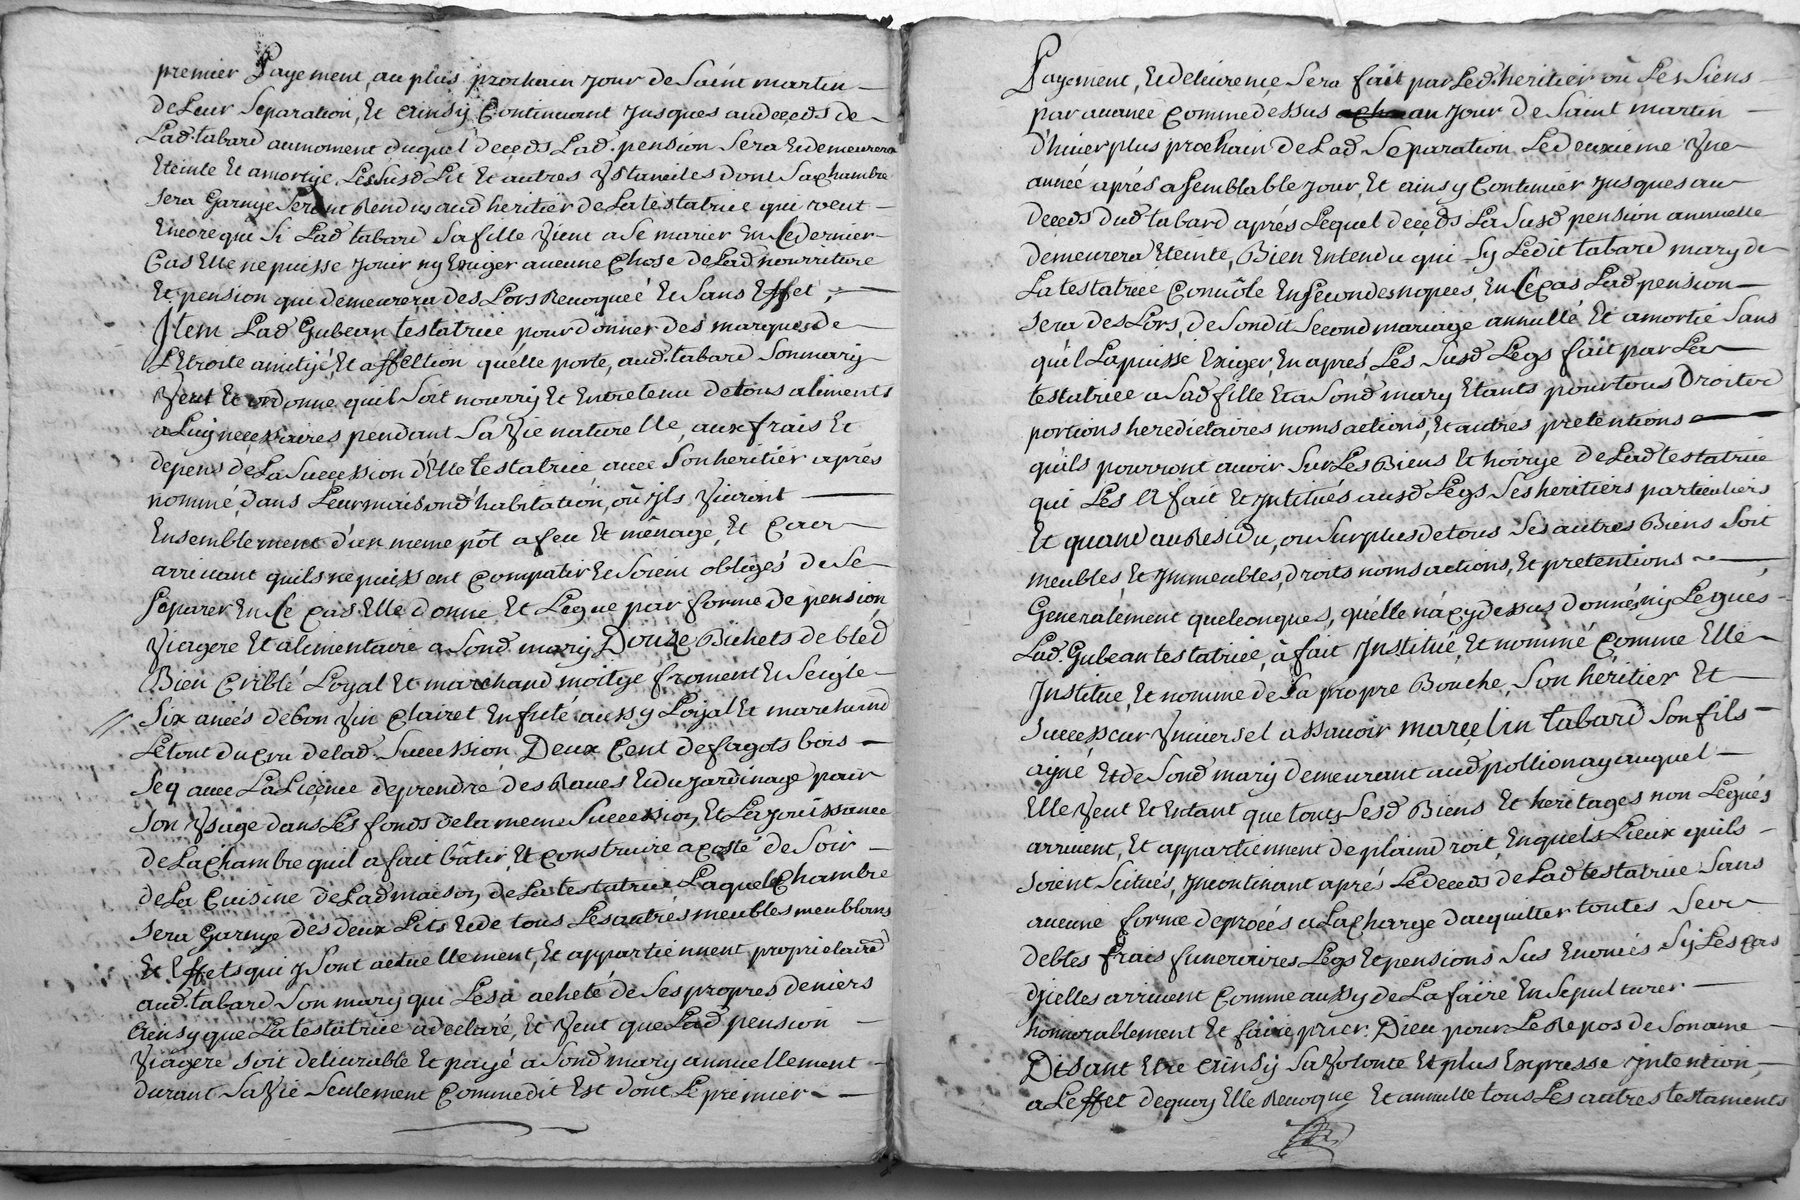 premier Payement, au plus prochain jour de Saint martin
de Leur Separation, Et ainsy Continuant jusques au deceds de
Lad. tabard au moment duquel deceds Lad. pension Sera Et demeurera
Eteinte Et amortye, Les Susd Lit Et autres Ustancilles dont Sa chambre
Sera Garnye Seront Rendus aud heritier de La testatrice qui veut
Encore que Si Lad tabard Sa fille Vient a Se marier En Ce dernier
Cas Elle ne puisse jouir ny Exiger aucune Chose de Lad nourriture
Et pension qui demeurera des Lors Revoqueé Et Sans Effet,
Jtem Lad Gubean testatrice pour donner des marques de
L'Etroite amityé Et affection qu'elle porte, aud. tabard Son mary
Veut Et ordonne quil Soit nourry Et Entretenu de tous aliments
a Luy necessaires pendant Sa Vie naturelle, aux frais Et
depens de La Succession d'Elle testatrice avec Son heritier aprés
nommé, dans Leur maison d'habitation, où jls Vivront
Ensemblement d'un meme pôt a feu Et ménage, Et Cas
arrivant quils ne puissent Compatir Et Soient obligés de Se
Separer En Ce cas Elle donne Et Legue par forme de pension
Viagere Et alimentaire a Sond. mary Douze Bichets de bled
Bien Criblé Loyal Et marchand moitye froment Et Seigle
Six aneés de bon Vin Clairet En futé aussy Loyal Et marchand
Le tout du Cru de lad. Succession Deux Cent de fagots bois
Seq avec La Licence de prendre des Raves Et du jardinage pour
Son Usage dans Les fonds de la meme Succession, Et La jouissance
de La chambre quil a fait bâtir, Et Construire a costé de Soir
de La Cuisine de Lad maison de La testatrice Laquelle Chambre
Sera Garnye des deux Lits Et de tous Les autres meubles meublans
Et Effets qui y Sont actuellement, Et appartiennent proprietaire
aud. tabard Son mary qui Les a acheté de Ses propres deniers
ainsy que La testatrice a declaré, Et Veut que Lad pension
Viagere Soit delivrable Et payé a Sond mary annuellement
durant Sa Vie Seulement Comme dit Est dont Le premier
Payement, Et delivrence Sera fait par Led. heritier ou Les Siens
par avance Comme dessus au jour de Saint martin
d'hiver plus prochain de Lad Separation Le deuxieme Une
année aprés a Semblable jour Et ainsy Continuer jusques au
deceds dud tabard aprés Lequel deceds La Susd pension annuelle
demeurera Eteinte, Bien Entendu que Sy Ledit tabard mary de
La testatrice Convôle En Secondes nopces, En Ce cas Lad pension
Sera des Lors, de Sondit Second mariage annullé Et amortie Sans
qu'il La puisse Exiger, En aprés Les Susd Legs fait par La
testatrice a Sad fille Et a Sond mary Etants pour tous Droits
portions herediétaires noms actions, Et autres pretentions
quils pourront avoir Sur Les Biens Et hoirye de Lad testatrice
qui Les a fait Et Jntitués ausd Legs Ses heritiers particuliers
Et quand au Residu, ou Surplus de tous Ses autres Biens Soit
meubles Et Jmmeubles, droits noms actions, Et pretentions
Generalement quelconques, qu'elle n'a cy dessus donnés ny Legués
Lad. Gubean testatrice, a fait Jnstitué, Et nommé Comme Elle
Jnstitue, Et nomme de Sa propre Bouche, Son héritier Et
Successeur Universel assavoir marcelin tabard Son fils
ayné Et de Sond mary demeurant aud pollionay auquel
Elle Veut Et Entant que tous Sesd Biens Et heritages non Legués
arrivent, Et appartiennent de plaind roit, En quels Lieux quils
Soient Scitués, jncontinant aprés Le deceds de Lad testatrice Sans
aucune forme de procés a La charge d'acquitter toutes Ses
debtes frais funeraires Legs Et pensions Sus Enoncés Sy Les cas
d'jcelles arrivent Comme aussy de La faire En Sepulturer
honnorablement Et faire prier Dieu pour Le Repos de Son ame
Disant Etre ainsy Sa Volonte Et plus Expresse jntention,
a L'effet dequoy Elle Revoque Et annulle tous Les autres testaments